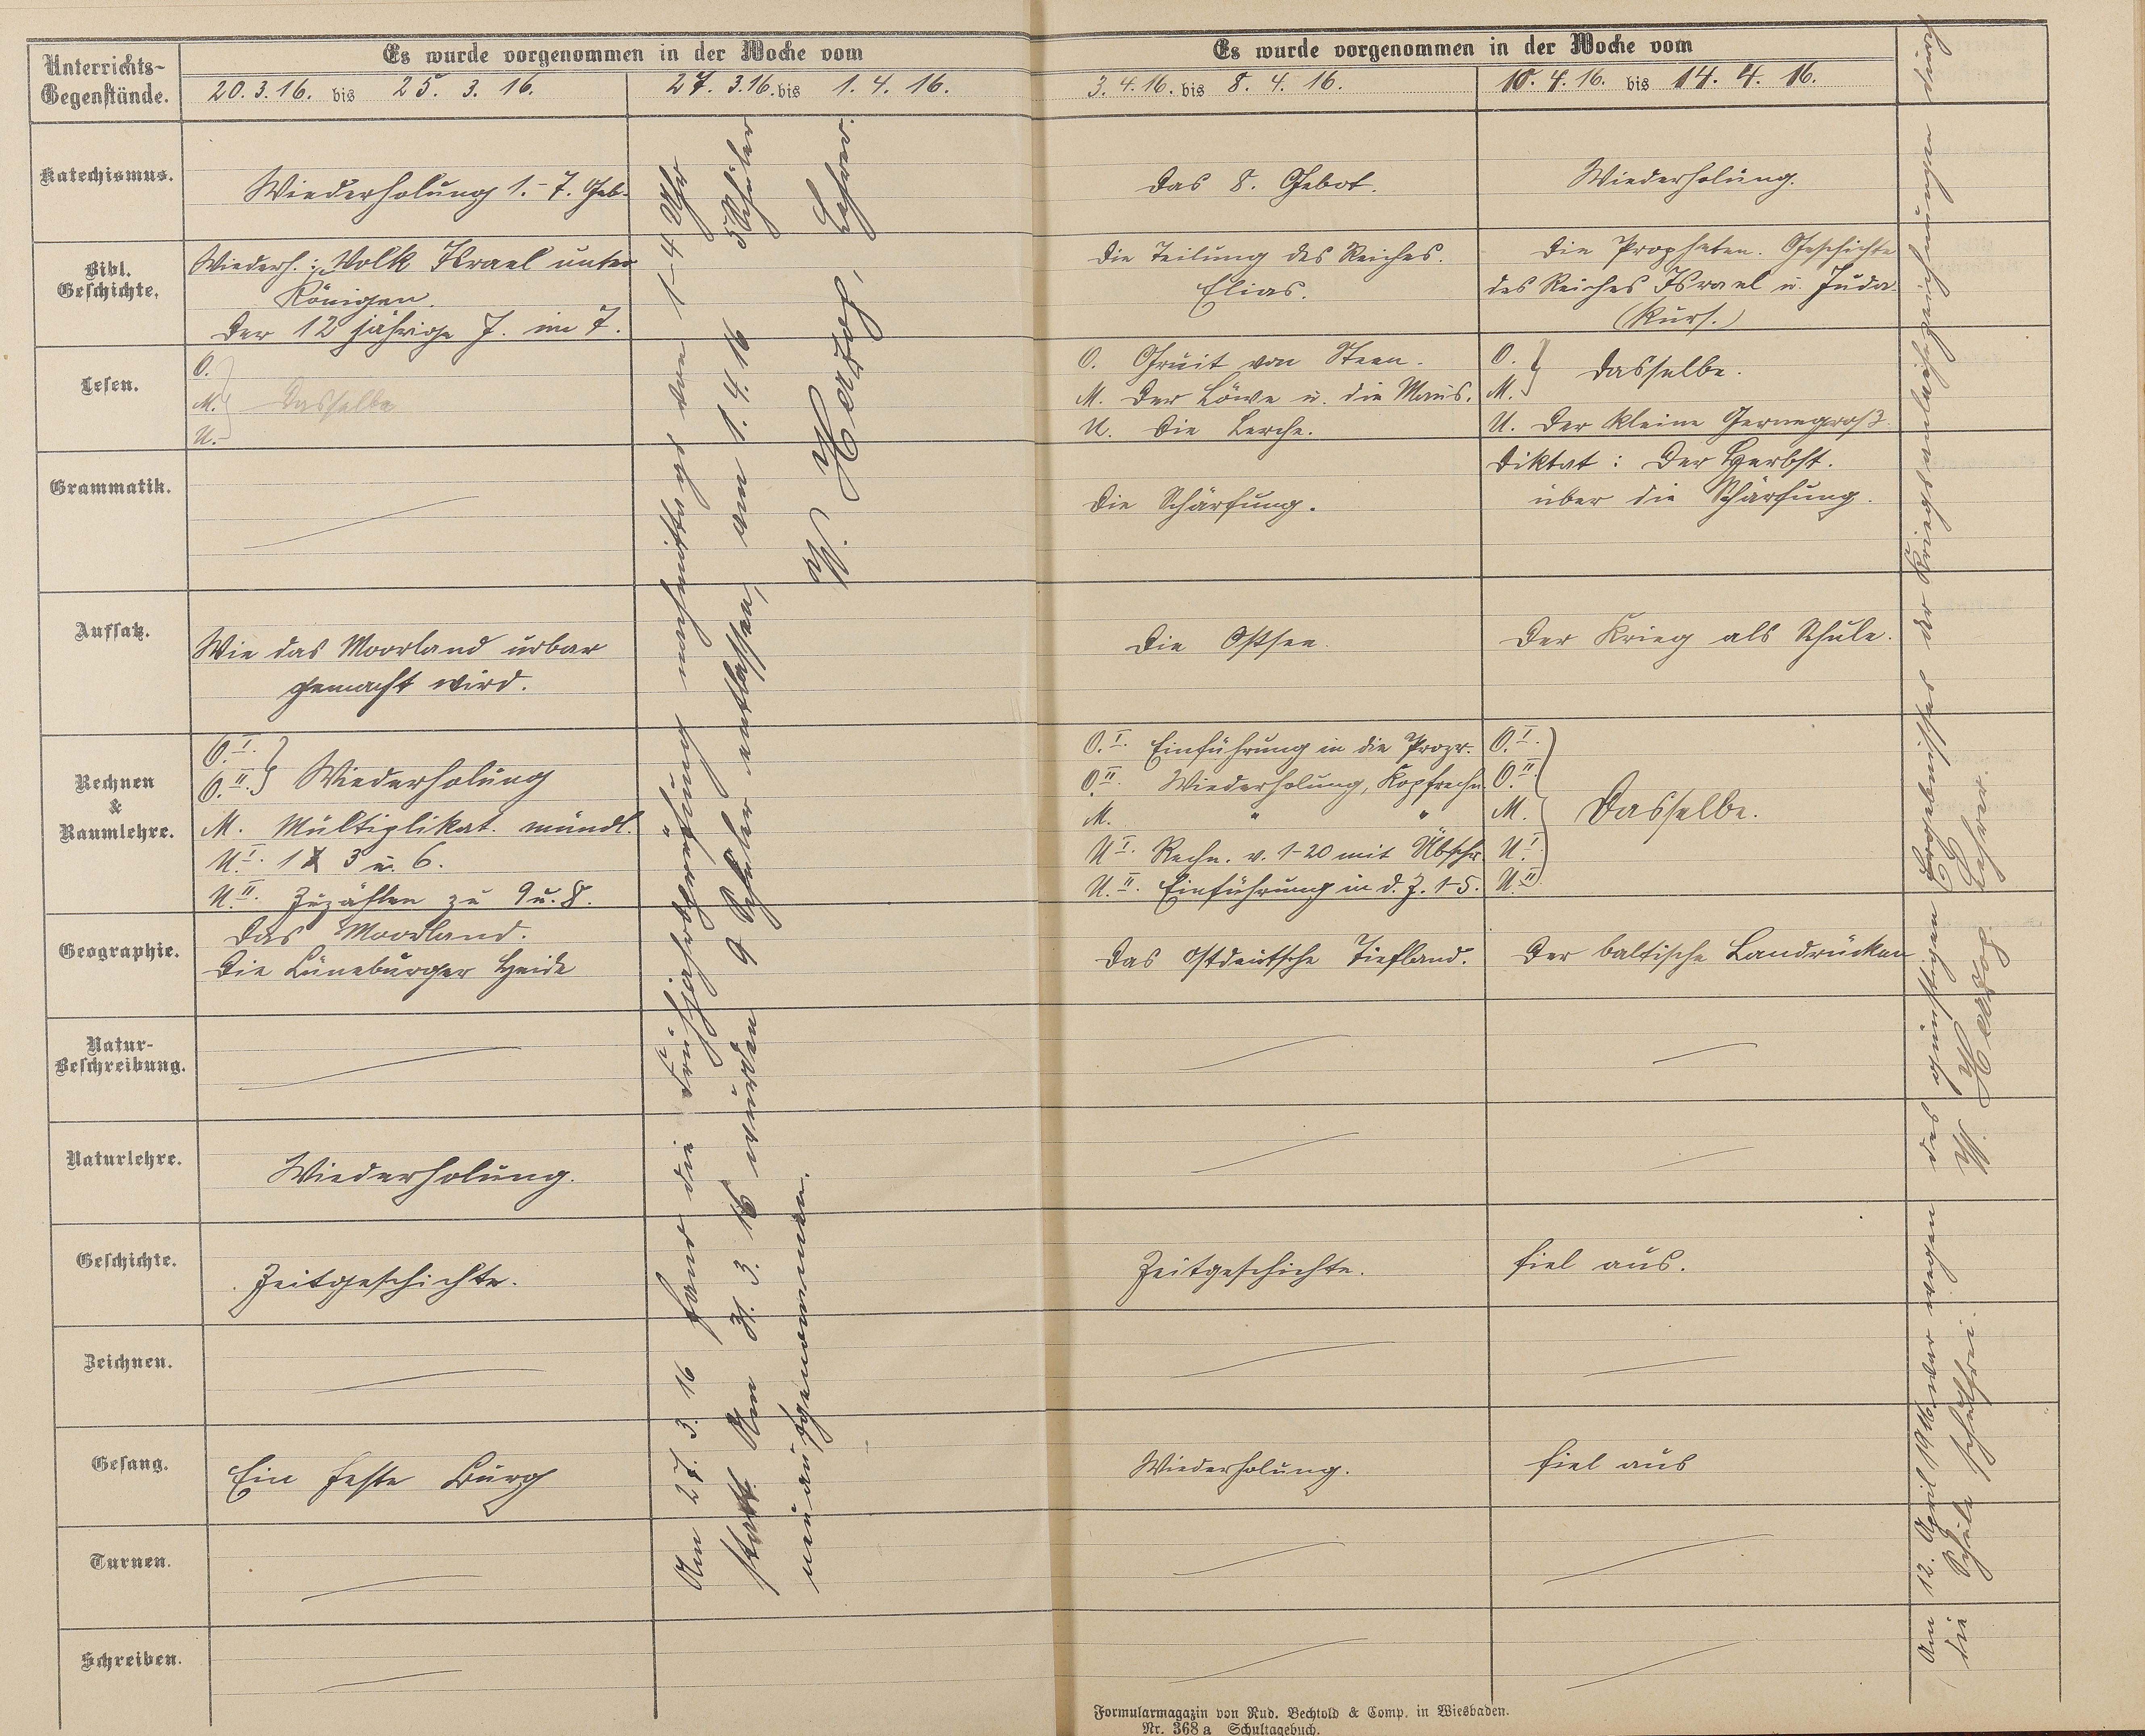 Unterrichts-
Gegenstände.
Es wurde vorgenommen in der Woche vom
20. 3. 16. bis 25. 3. 16.
27. 3. 16. bis 1. 4. 16.
Es wurde vorgenommen in der Woche vom
3. 4. 16. bis 8. 4. 16.
10. 4. 16. bis 14. 4. 16.
Katechismus.
Wiederholung 1.-7. Geb.
Das 8. Gebot.
Wiederholung.
Bibl.
Geschichte.
Wiederh.: Volk Israel unter
Königen.
Der 12 jährige J. im T.
Die Teilung des Reiches.
Elias.
Die Propheten. Geschichte
des Reiches Israel u. Juda.
(Kurs.)
Lesen.
O.
M. Dasselbe
U.
O. Gruit van Steen.
M. Der Löwe u. die Maus.
U. Die Lerche.
O.
M. Dasselbe.
U. Der kleine Gernegroß.
Grammatik.
Die Schärfung.
Diktat: Der Herbst.
über die Schärfung.
Aufsatz.
Wie das Moorland urbar
gemacht wird.
Die Ostsee.
Der Krieg als Schule.
Rechnen
&
Raumlehre.
O. I.
O. II. Wiederholung
M. Multiplikat. mündl.
U. I. 1 x 3 u. 6.
U. II. Zuzählen zu 9 u. 8.
O. I. Einführung in die Prozr.
O. II. Wiederholung, Kopfrechn.
M. " "
U. I. Rechn. v. 1-20 mit Übschr.
U. II. Einführung in d. Z. 1-5.
O. I.
O. II.
M. Dasselbe.
U. I.
U. II.
Geographie.
Das Moorland.
Die Lüneburger Heide
Das ostdeutsche Tiefland.
Der baltische Landrücken
Natur-
Beschreibung.
Naturlehre.
Wiederholung.
Geschichte.
Zeitgeschichte.
Zeitgeschichte.
fiel aus.
Zeichnen.
Gesang.
Ein feste Burg
Wiederholung.
fiel aus
Turnen.
Schreiben.
Am 27. 3. 16 fand die Frühjahrsprüfung nachmittags von 1-4 Uhr
statt. Am 31. 3. 16 wurden 9 Schüler entlassen, am 1. 4. 16 5 Schüler
neu aufgenommen.
W. Herzog, Lehrer.
Am 12. April 1916 war wegen des günstigen Ergebnisses der Kriegsanleihezeichnungen durch
die Schule schulfrei.
W. Herzog. Lehrer.
Formularmagazin von Rud. Bechtold & Comp. in Wiesbaden.
Nr. 368 a Schultagebuch.